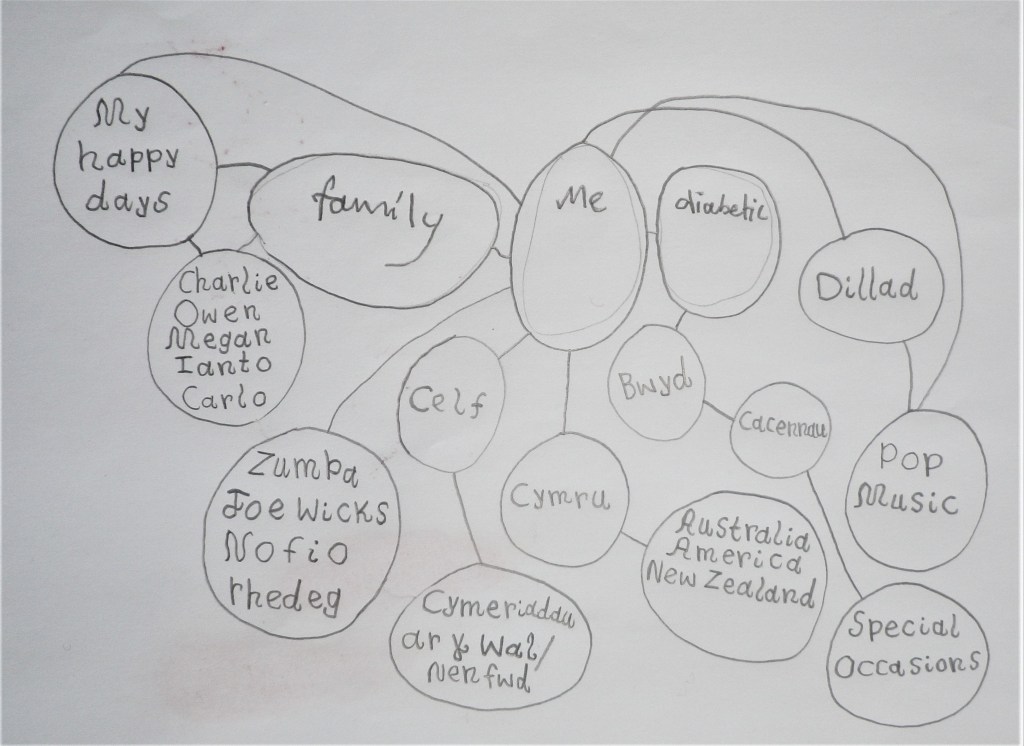 My
happy
days
family
Me
diabetic
Dillad
Charlie
Owen
Megan
Ianto
Carlo
Celf
Bwyd
Cacennau
Pop
Music
Zumba
Joe Wicks
Nofio
rhedeg
Cymru
Australia
America
New Zealand
Cymeriaddau
ar y Wal/
Nenfwd
Special
Occasions